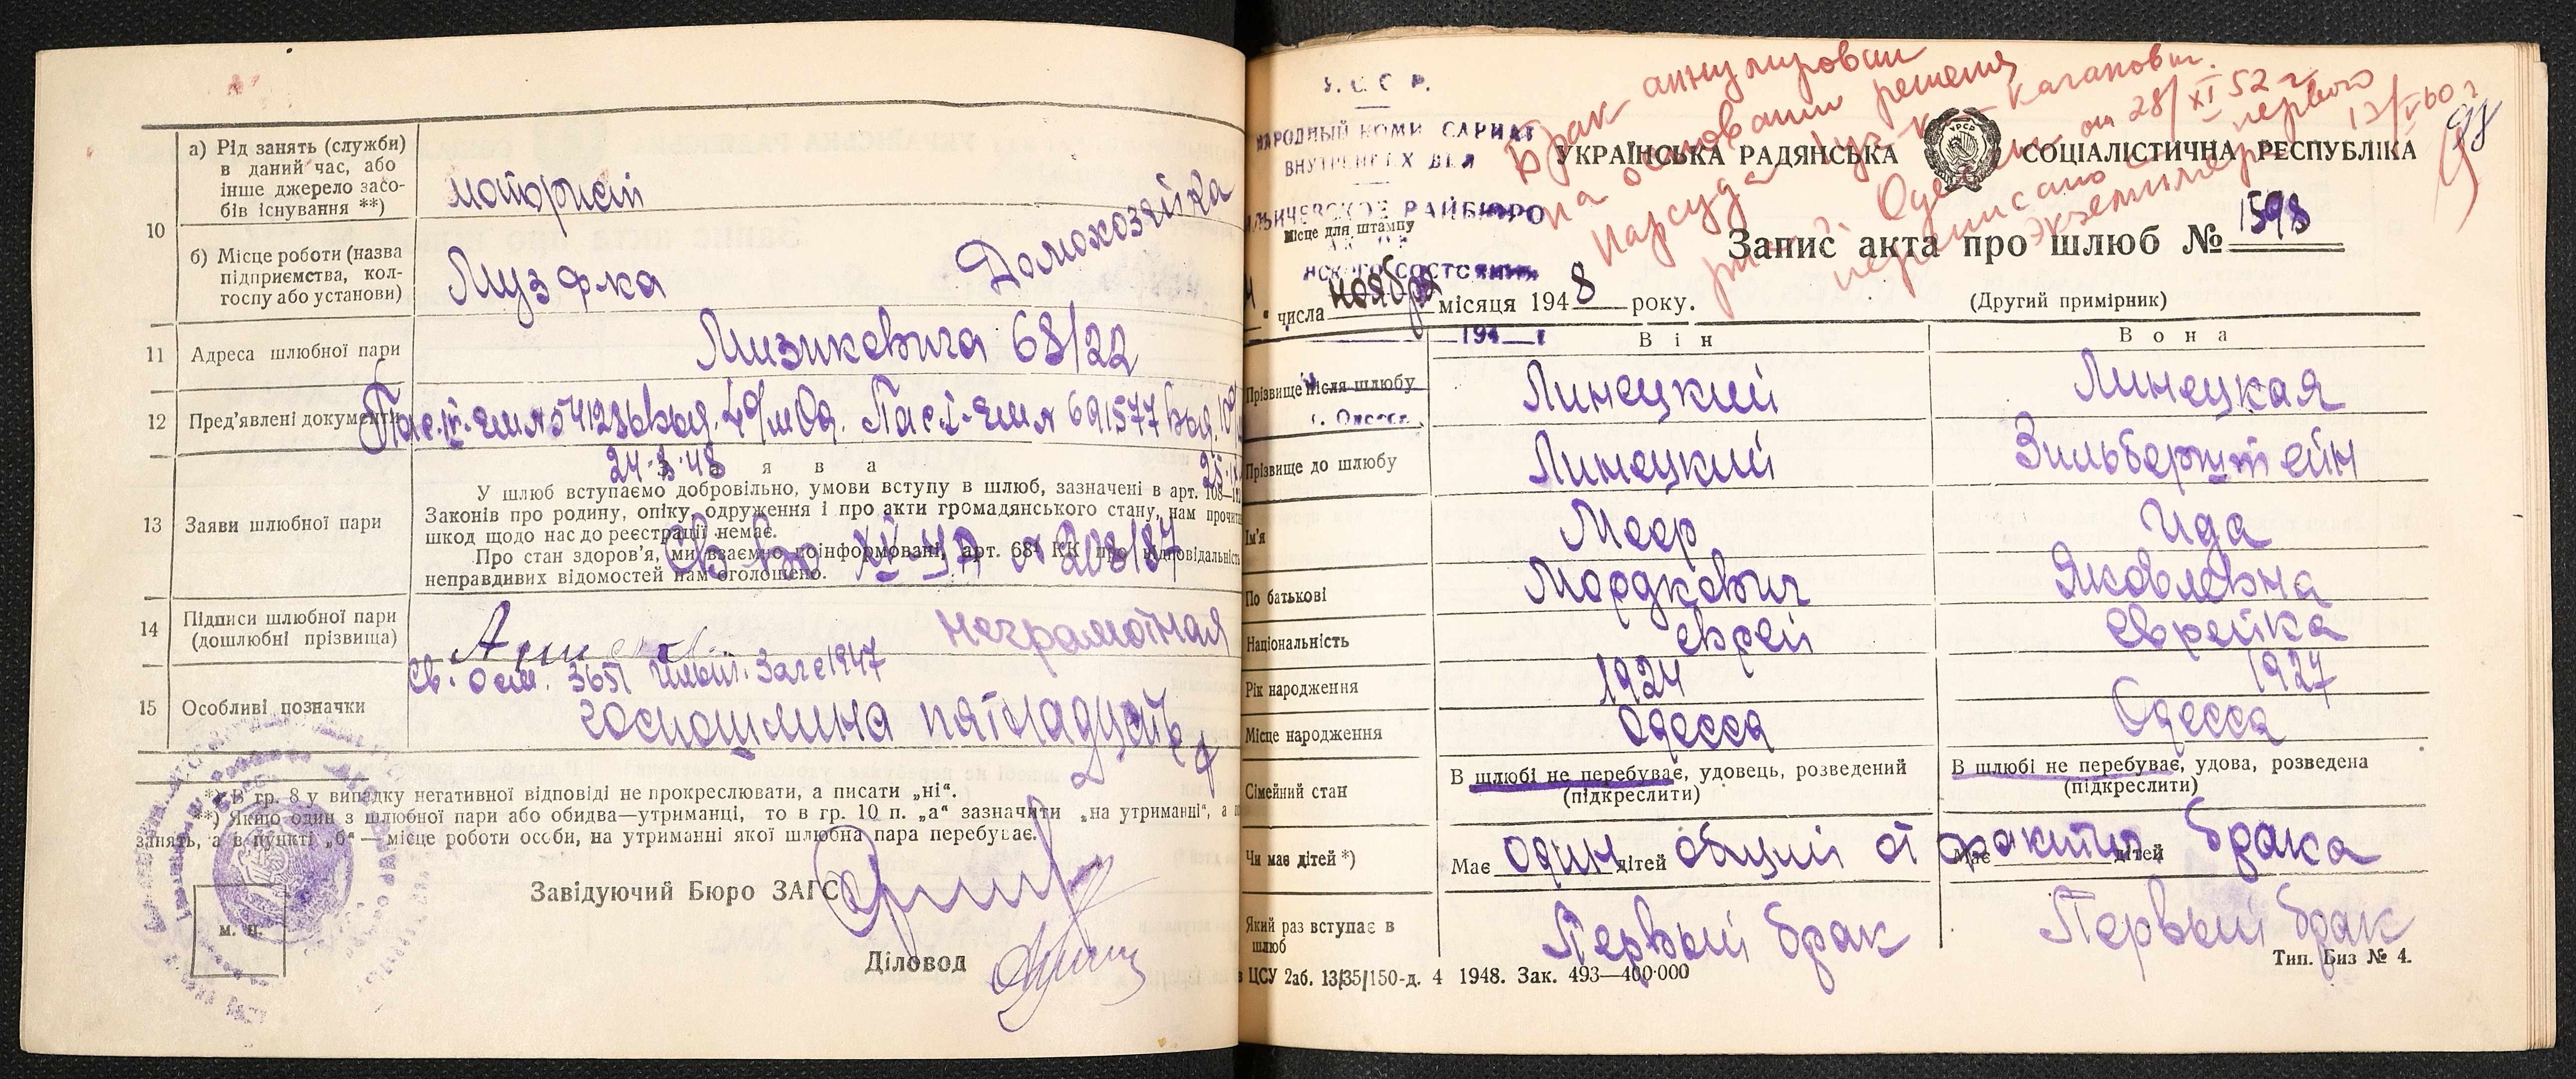 10
а) Рід занять (служби)
в даний час, або
інше джерело засо-
бів існування **)
моторист
б) Місце роботи (назва
підприємства, кол-
госпу або установи)
Музф-ка
Домохозяйка
11
Адреса шлюбної пари
Мизикевича 68/22
12
Пред'явлені документи
24. 48
13
Заяви шлюбної пари
З а я в а
У шлюб вступаємо добровільно, умови вступу в шлюб, зазначені в арт. 108—
Законів про родину, опіку, одруження і про акти громадянського стану, нам прочит
шкод щодо нас до реєстрації немає.
Про стан здоров'я, ми взаємно поінформовані, арт. 68¹ КК про відповідальність
неправдивих відомостей нам оголошено.
208187
14
Підписи шлюбної пари
(дошлюбні прізвища)
неграмотная
15
Особливі позначки
Св. 3651 1947
госпошлина пятнадцать р
*) В гр. 8 у випадку негативної відповіді не прокреслювати, а писати „ні“.
**) Якщо один з шлюбної пари або обидва—утриманці, то в гр. 10 п. „а“ зазначити „на утриманні“, а
занять, а в пункті „б“ — місце роботи особи, на утриманні якої шлюбна пара перебуває.
Завідуючий Бюро ЗАГС
Діловод
м. п.
У. С С Р.
НАРОДНЫЙ КОМИССАРИАТ
ВНУТРЕННИХ ДЕЛ
ИЛЬИЧЕВСКОЕ РАЙБЮРО
Місце для штампу
нского состояния
194 г
г. Одесса
Брак аннулирован
на основании решения
нарсуда Кагановит.
Одессы от 28/XI 52 г
первого
экземпляра 13/V 60 г
98
УКРАЇНСЬКА РАДЯНСЬКА СОЦІАЛІСТИЧНА РЕСПУБЛІКА
УРСР
Запис акта про шлюб № 1598
числа ноября місяця 1948 року.
(Другий примірник)
Він
Вона
Прізвище після шлюбу
Линецкий
Линецкая
Прізвище до шлюбу
Линецкий
Зильберштейн
Ім'я
Меер
Ида
По батькові
Мордкович
Яковлевна
Національність
еврей
еврейка
Рік народження
1924
1927
Місце народження
Одесса
Одесса
Сімейний стан
В шлюбі не перебуває, удовець, розведений
(підкреслити)
В шлюбі не перебуває, удова, розведена
(підкреслити)
Чи має дітей *)
Має один дітей общий от фактич. брака
Має дітей
Який раз вступає в
шлюб
Первый брак
Первый брак
Тип. Биз № 4.
ЦСУ 2аб. 13/35/150-д. 4 1948. Зак. 493—400·000